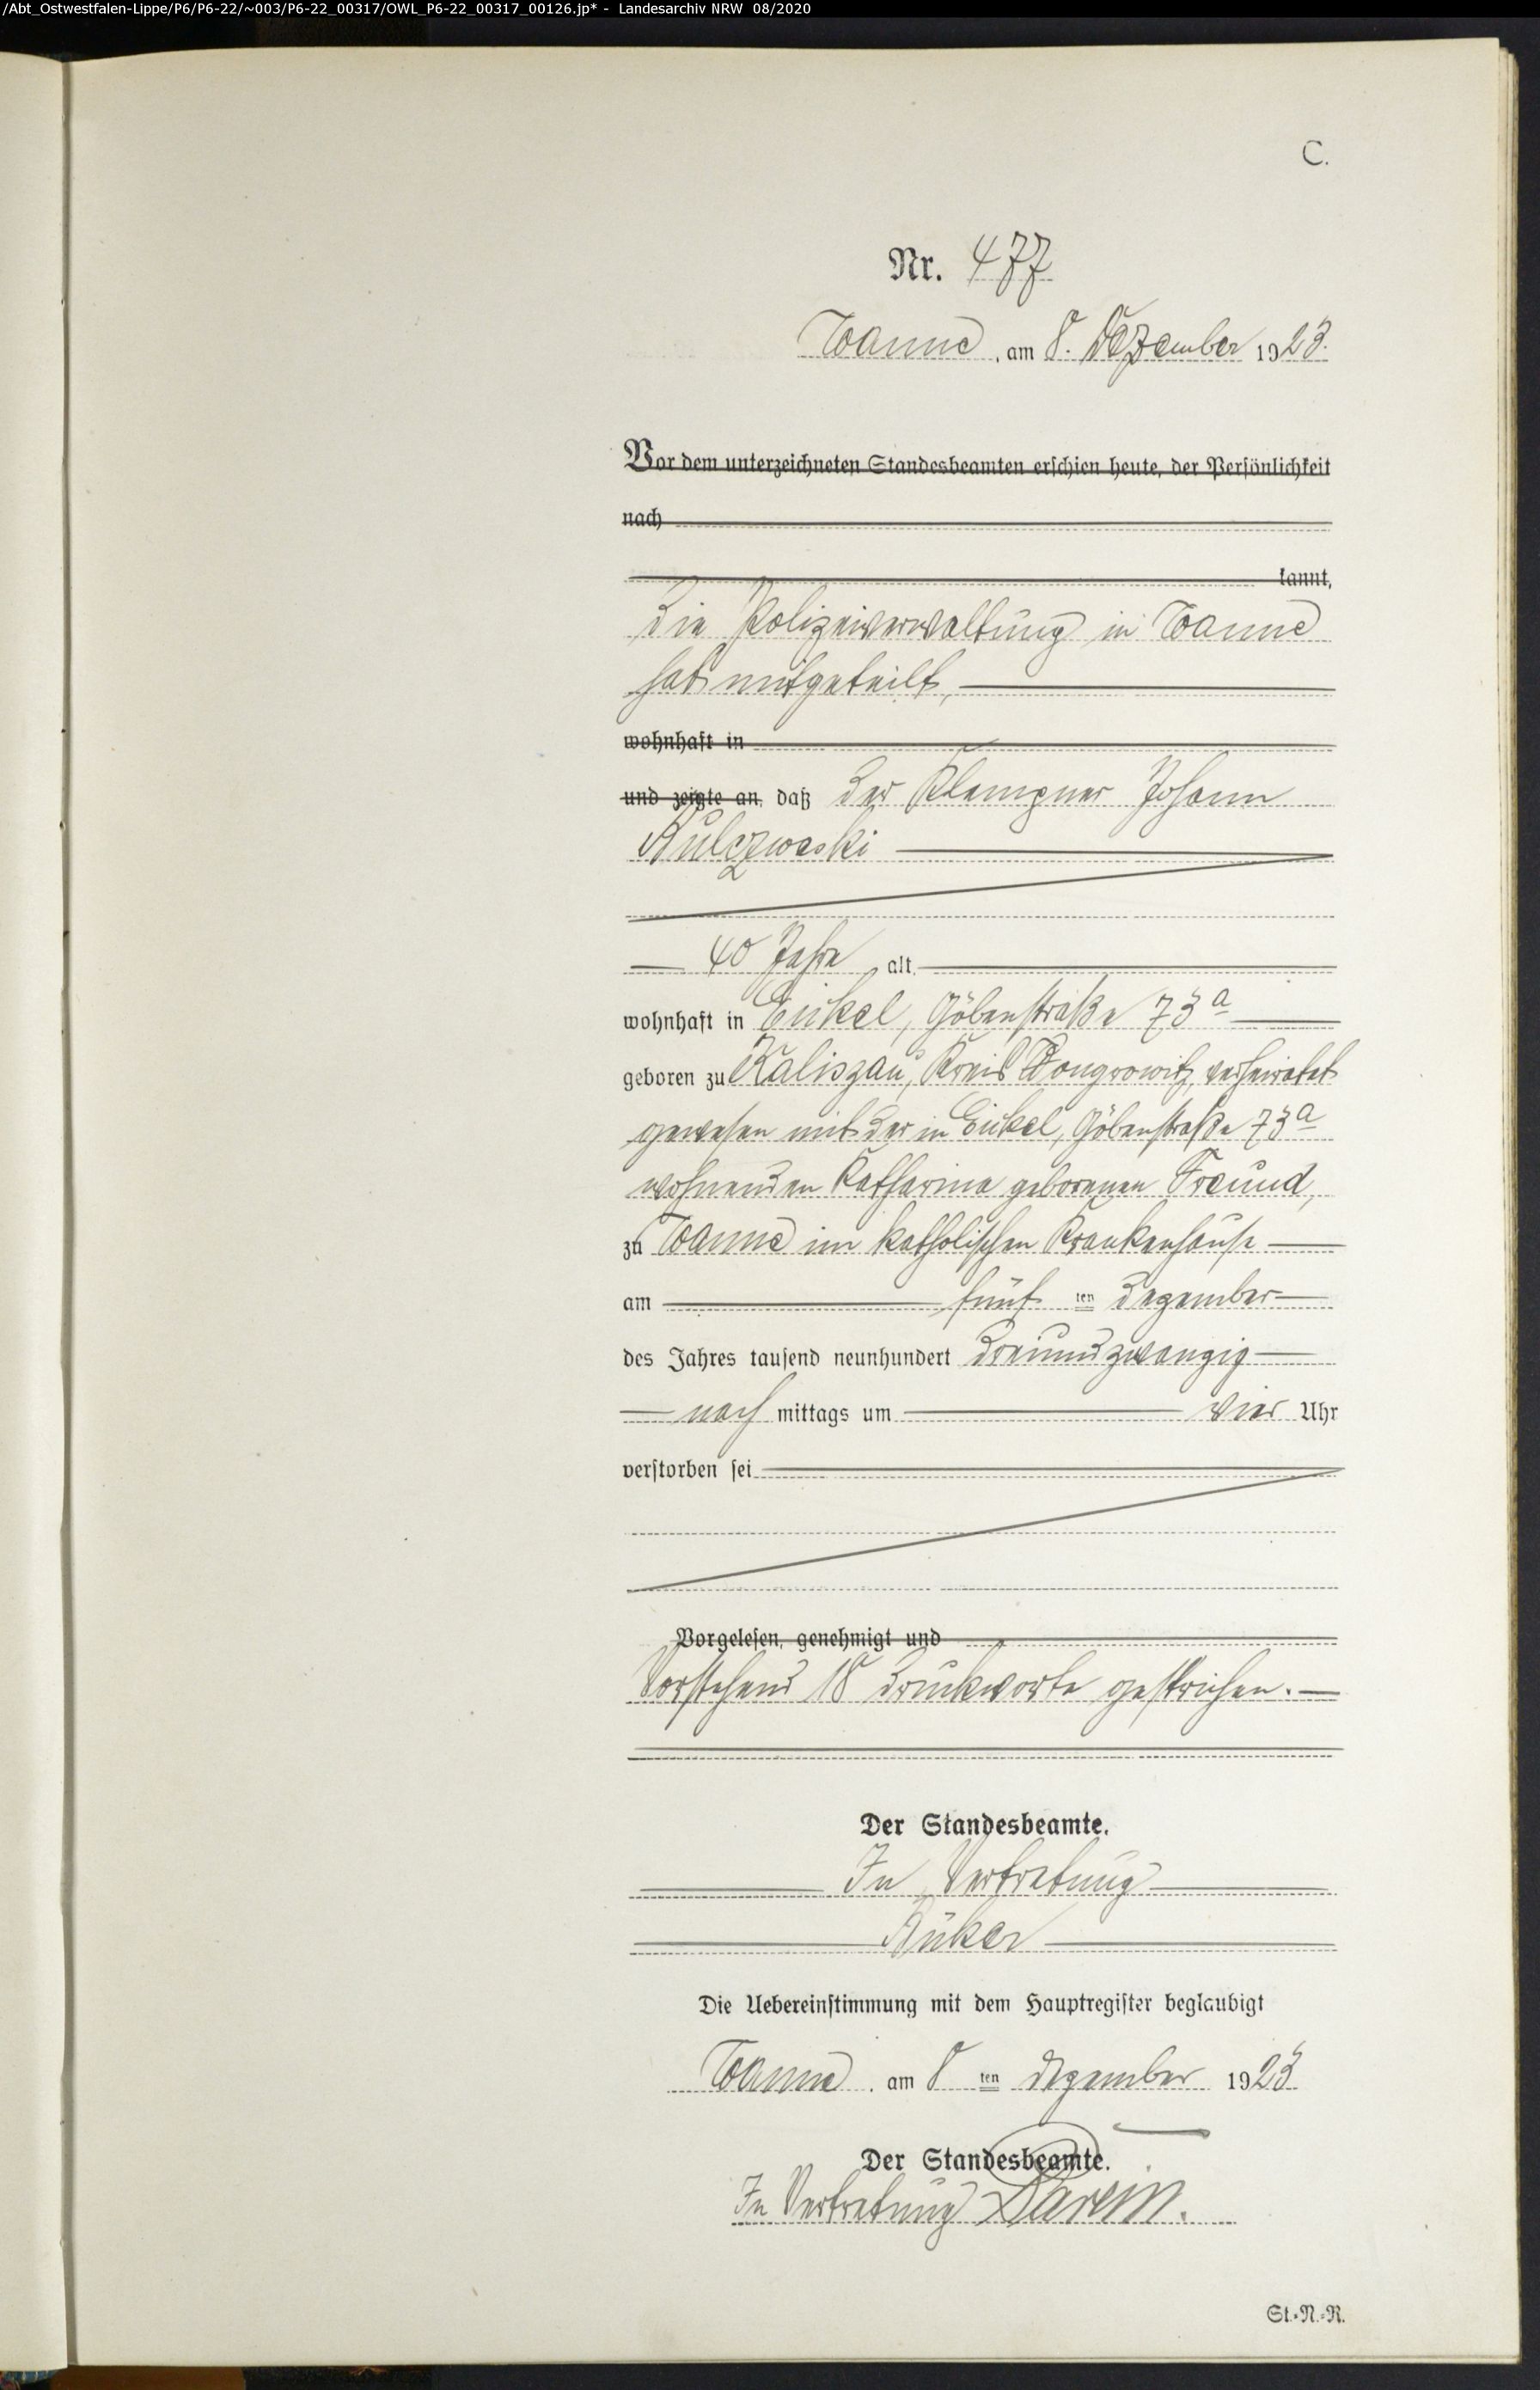 /Abt_Ostwestfalen-Lippe/P6/P6-22/~003/P6-22_00317/OWL_P6-22_00317_00126.jp* - Landesarchiv NRW 08/2020
C.
Nr. 477
Wanne, am 8. Dezember 1923.
Vor dem unterzeichneten Standesbeamten erschien heute, der Persönlichkeit
nach
kannt,
Die Polizeiverwaltung in Wanne
hat mitgeteilt,
wohnhaft in
und zeigte an, daß der Klempner Johann
Kulczweski
40 Jahre alt,
wohnhaft in Eickel, Göbenstraße 73a
geboren zu Kaliszau, Kreis Wongrowitz, verheiratet
gewesen mit der in Eickel, Göbenstraße 73a
wohnenden Katharina geborenen Freund,
zu Wanne im katholischen Krankenhause
am fünf ten Dezember
des Jahres tausend neunhundert dreiundzwanzig
nach mittags um vier Uhr
verstorben sei
Vorgelesen, genehmigt und
Vorstehend 18 Druckworte gestrichen.
Der Standesbeamte.
In Vertretung
Die Uebereinstimmung mit dem Hauptregister beglaubigt
Wanne, am 8 ten Dezember 1923
Der Standesbeamte.
In Vertretung
St.-N.-R.